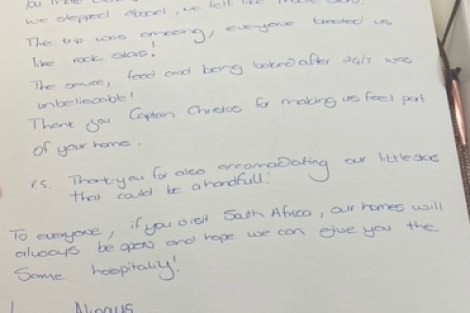 you
we stepped aboad, we felt like
The trip was amazing, everyone treated us
like rock stars!
The service, food and being looked after 24/7 was
unbelievable!
Thank you Captain for making us feel part
of your home.
P.S. Thank you for also accomadating our little ones
that could be a handfull!
To everyone, if you visit South Africa, our homes will
always be open and hope we can give you the
same hospitality!
Always